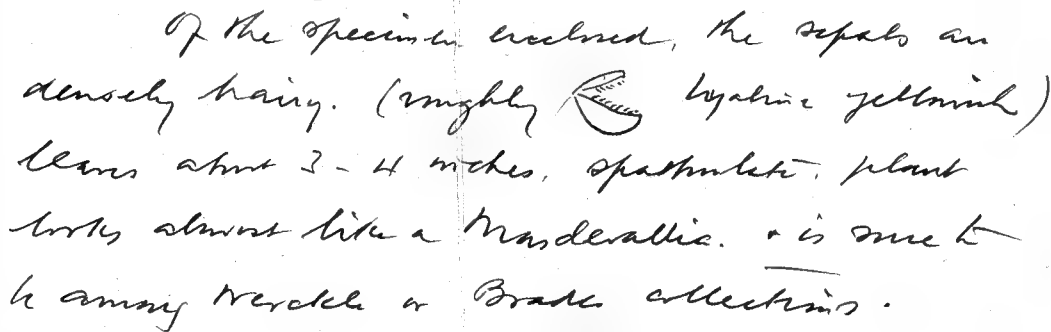 Of the specimen enclosed, the sepals are
densely hairy. (roughly hyaline yellowish)
leaves about 3-4 inches, spathulate, plant
looks almost like a Masdevallia. + is sure to
be among Werckle or Brades collections.